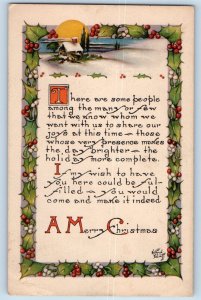 There are some people
among the many or few
that we know whom we
want with us to share our
joys at this time - those
whose very presence makes
the day brighter - the
holiday more complete.
I my wish to have
you here could be ful-
filled - you would
come and make it indeed
A Merry Christmas